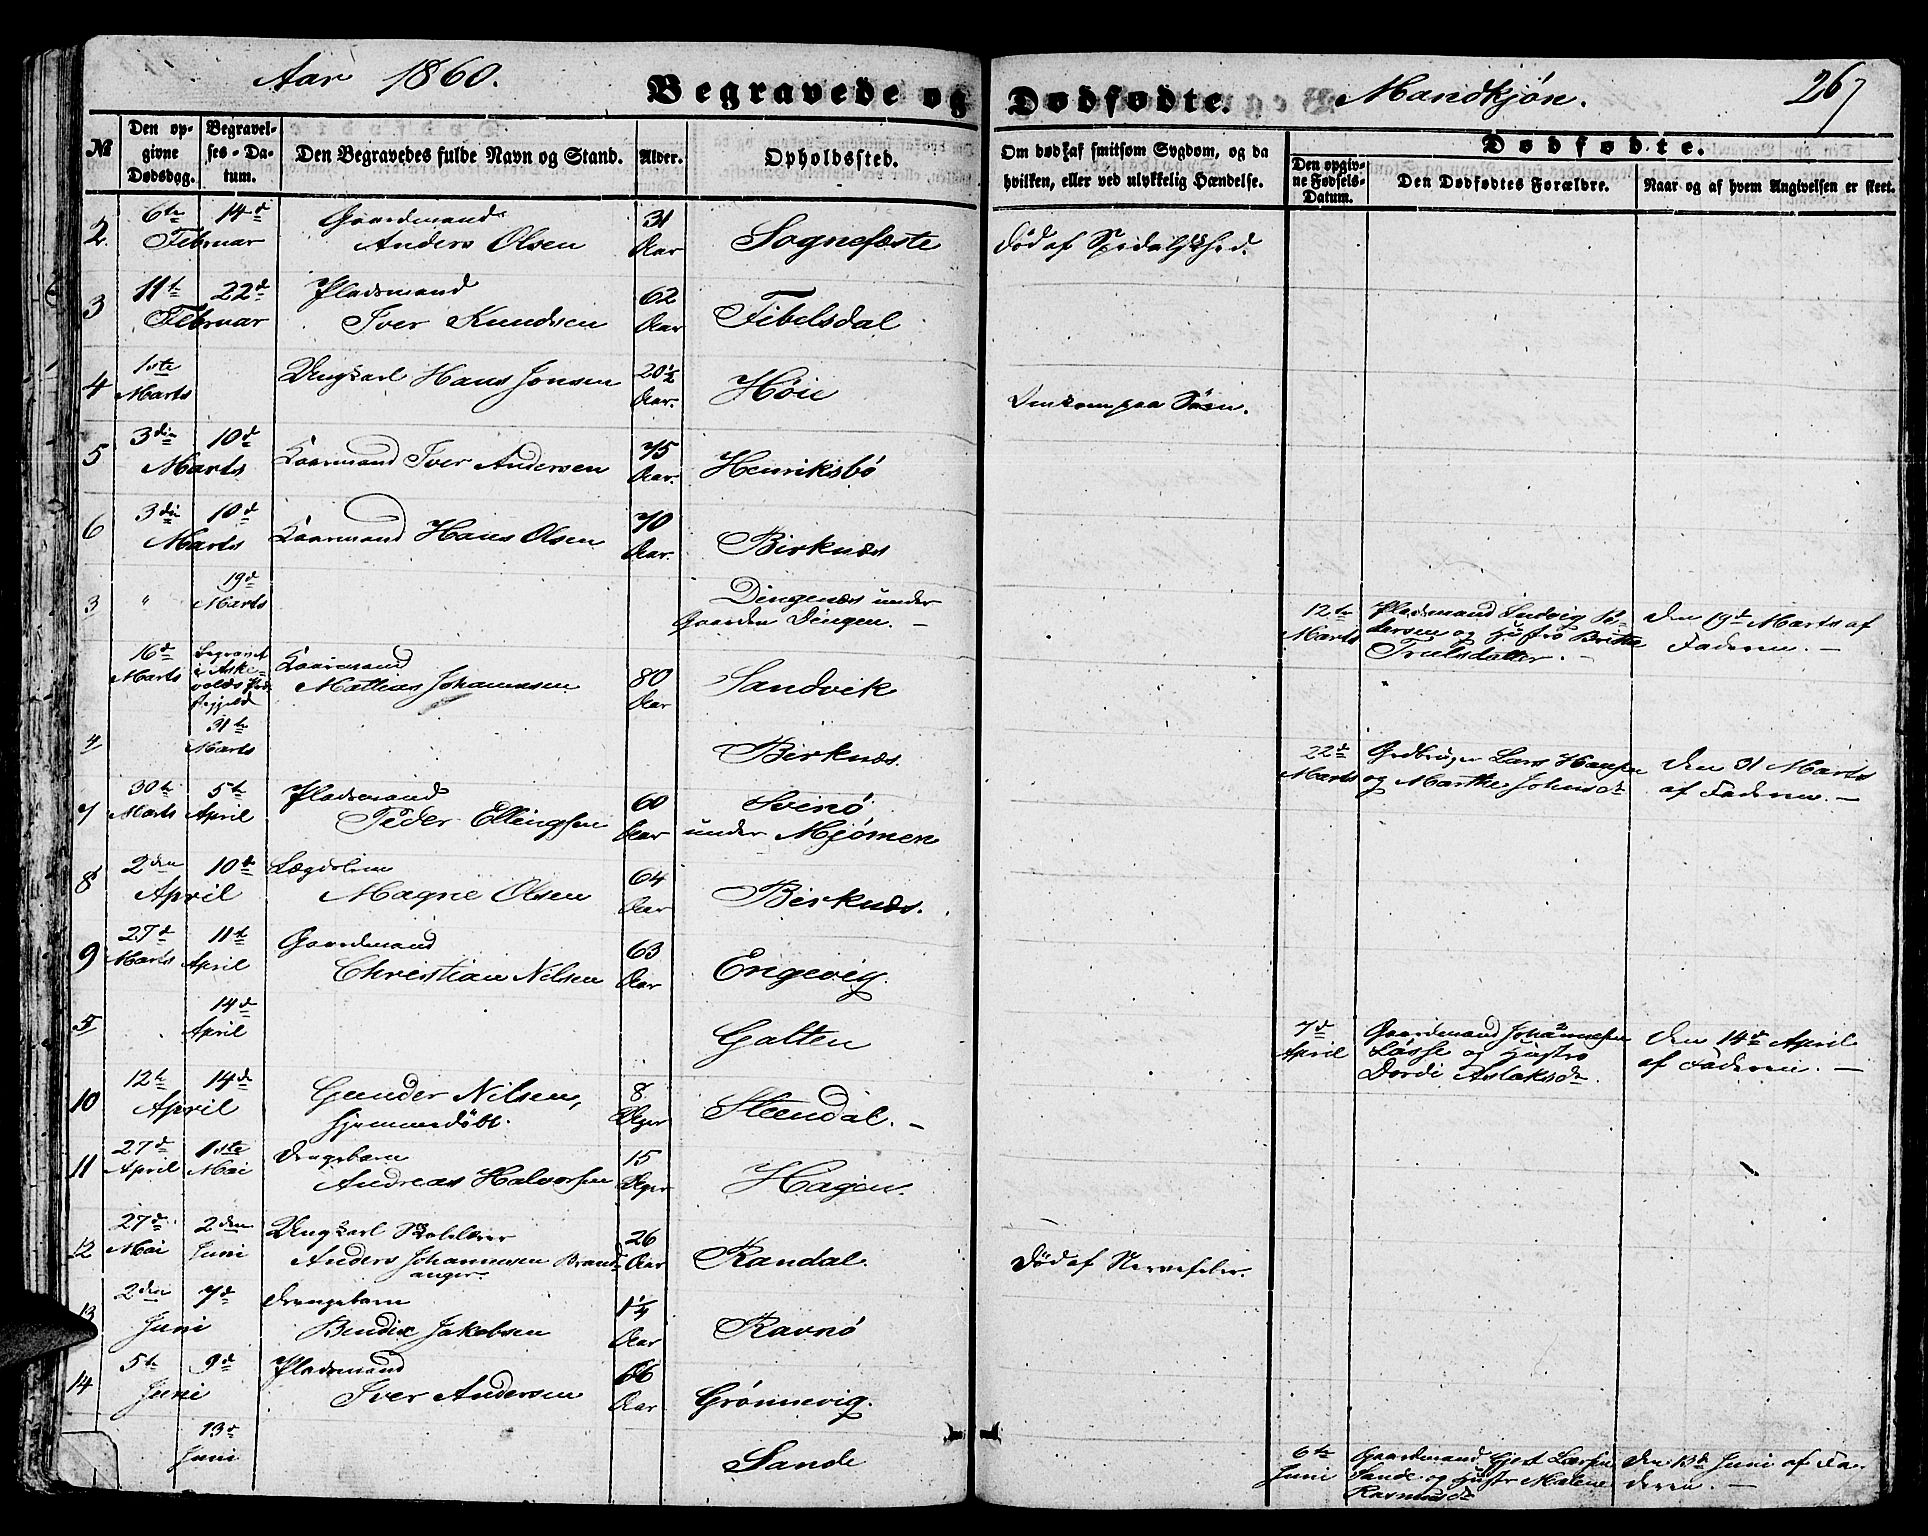 Aar 1860.
Begravede og Dødfødte.
Mandkjøn.
267
№
Den opgivne Dødsdag.
Begravelses-Datum.
Den Begravedes fulde Navn og Stand.
Alder.
Opholdssted.
Om død af smitsom Sygdom, og da hvilken, eller ved ulykkelig Hændelse.
Dødfødte.
Den opgivne Fødsels-Datum.
Den Dødfødtes Forældre.
Naar og af hvem Angivelsen er skeet.
2 6te 14d Gaardmand 31
Februar Anders Olsen Aar Sognefæste Død af Spedalskhed.
3 11te 22d Pladsmand 62
Februar Iver Knudsen Aar Tibelsdal
4 1ste Ungkarl Hans Jonsen 20½
Marts Aar. Høie Omkom paa Søen.
5 3die 10d Kaarmand Iver Andersen 75
Marts Aar. Henriksbø
6 3die 10d Kaarmand Hans Olsen 70
Marts Aar. Birknæs
3 " 19d Dingenæs under 12te Pladsmand Ludvig Pe- Den 19d Marts af
Marts Gaarden Dingen. — Marts dersen og Hustro Britha Faderen. —
Trulsdatter. —
16d Begravet Kaarmand 80
Marts i Aske- Mathias Johannesen Aar Sandvik
volds Præ-
stegjeld
4 31te Birknæs. 22d Lars Hansen Den 31 Marts
Marts Marts og Marthe Johnsd. af Faderen. —
7 30te 5te Pladsmand 60 Svinø
Marts April Peder Ellingsen Aar under Mjømen
8 2den 10de Lægdslem 64
April Magne Olsen Aar Birknæs.
9 27d 11te Gaardmand 63
Marts April Christian Nilsen Aar Engevig.
5 14d Galten 7d Gaardmand Johannes Den 14d April
April April og Hustro af Faderen. —
Dordi Aslaksd.
10 12te 14de Gunder Nilsen, 8
April hjemmedøbt. Dager Steendal. —
11 27d 1ste Drengebarn 15
April Mai Andreas Halvorsen Dager Hagen.
12 27d 2den Ungkarl Skolelærer 26
Mai Juni Anders Johannesen Brand- Aar Randal. Død af Nervefeber.
anger.
13 2den 7d Drengebarn 1¼
Juni Bendix Jakobsen Aar Ravnø
14 5te 9d Pladsmand 66
Juni Iver Andersen Aar. Grønnevig.
13d Sande 6te Gaardmand Larsen Den 13d Juni af Fa-
Juni Juni Sande og Hustr Malene deren. —
Rasmusd.